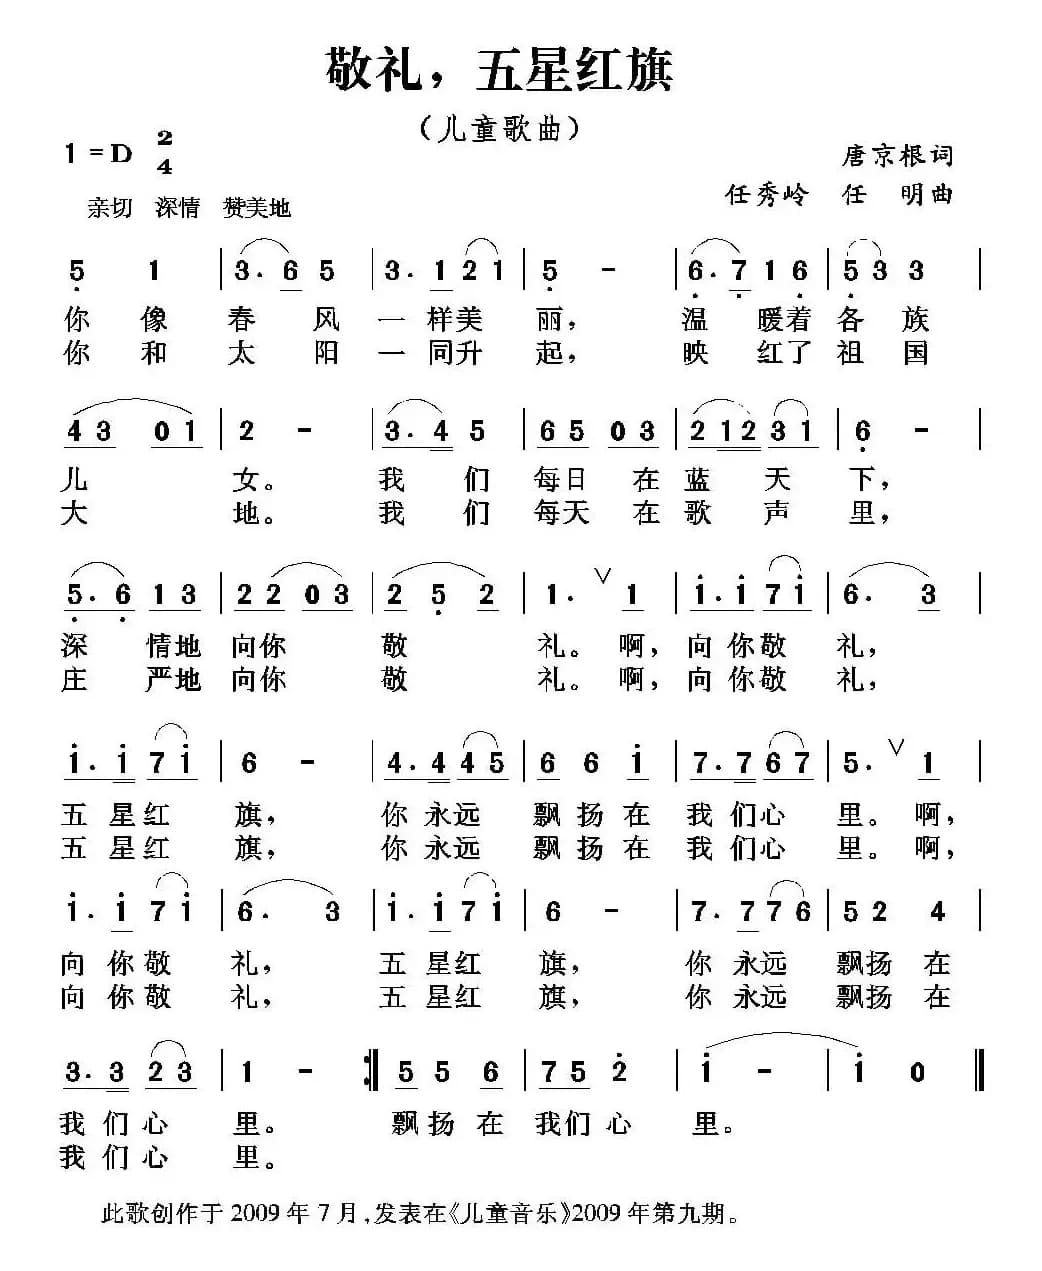 敬礼，五星红旗
（儿童歌曲）
1=D 2/4
唐京根词
亲切 深情 赞美地
任秀岭 任 明曲
5 1 | 3. 6 5 | 3. 1 2 1 | 5 - | 6. 7 1 6 | 5 3 3 |
你 像 春 风 一 样美 丽， 温 暖着 各 族
你 和 太 阳 一 同升 起， 映 红了 祖 国
4 3 0 1 | 2 - | 3. 4 5 | 6 5 0 3 | 2 1 2 3 1 | 6 - |
儿 女。 我 们 每日 在 蓝 天 下，
大 地。 我 们 每天 在 歌 声 里，
5. 6 1 3 | 2 2 0 3 | 2 5 2 | 1. ∨ 1 | i. i 7 i | 6. 3 |
深 情地 向你 敬 礼。 啊， 向 你敬 礼，
庄 严地 向你 敬 礼。 啊， 向 你敬 礼，
i. i 7 i | 6 - | 4. 4 4 5 | 6 6 i | 7. 7 6 7 | 5. ∨ 1 |
五 星红 旗， 你 永远 飘 扬 在 我 们心 里。 啊，
五 星红 旗， 你 永远 飘 扬 在 我 们心 里。 啊，
i. i 7 i | 6. 3 | i. i 7 i | 6 - | 7. 7 7 6 | 5 2 4 |
向 你 敬 礼， 五 星红 旗， 你 永远 飘扬 在
向 你 敬 礼， 五 星红 旗， 你 永远 飘扬 在
3. 3 2 3 | 1 - :| 5 5 6 | 7 5 2 | i - | i 0 ‖
我 们 心 里。 飘扬 在 我们 心 里。
我 们 心 里。
此歌创作于2009年7月，发表在《儿童音乐》2009年第九期。